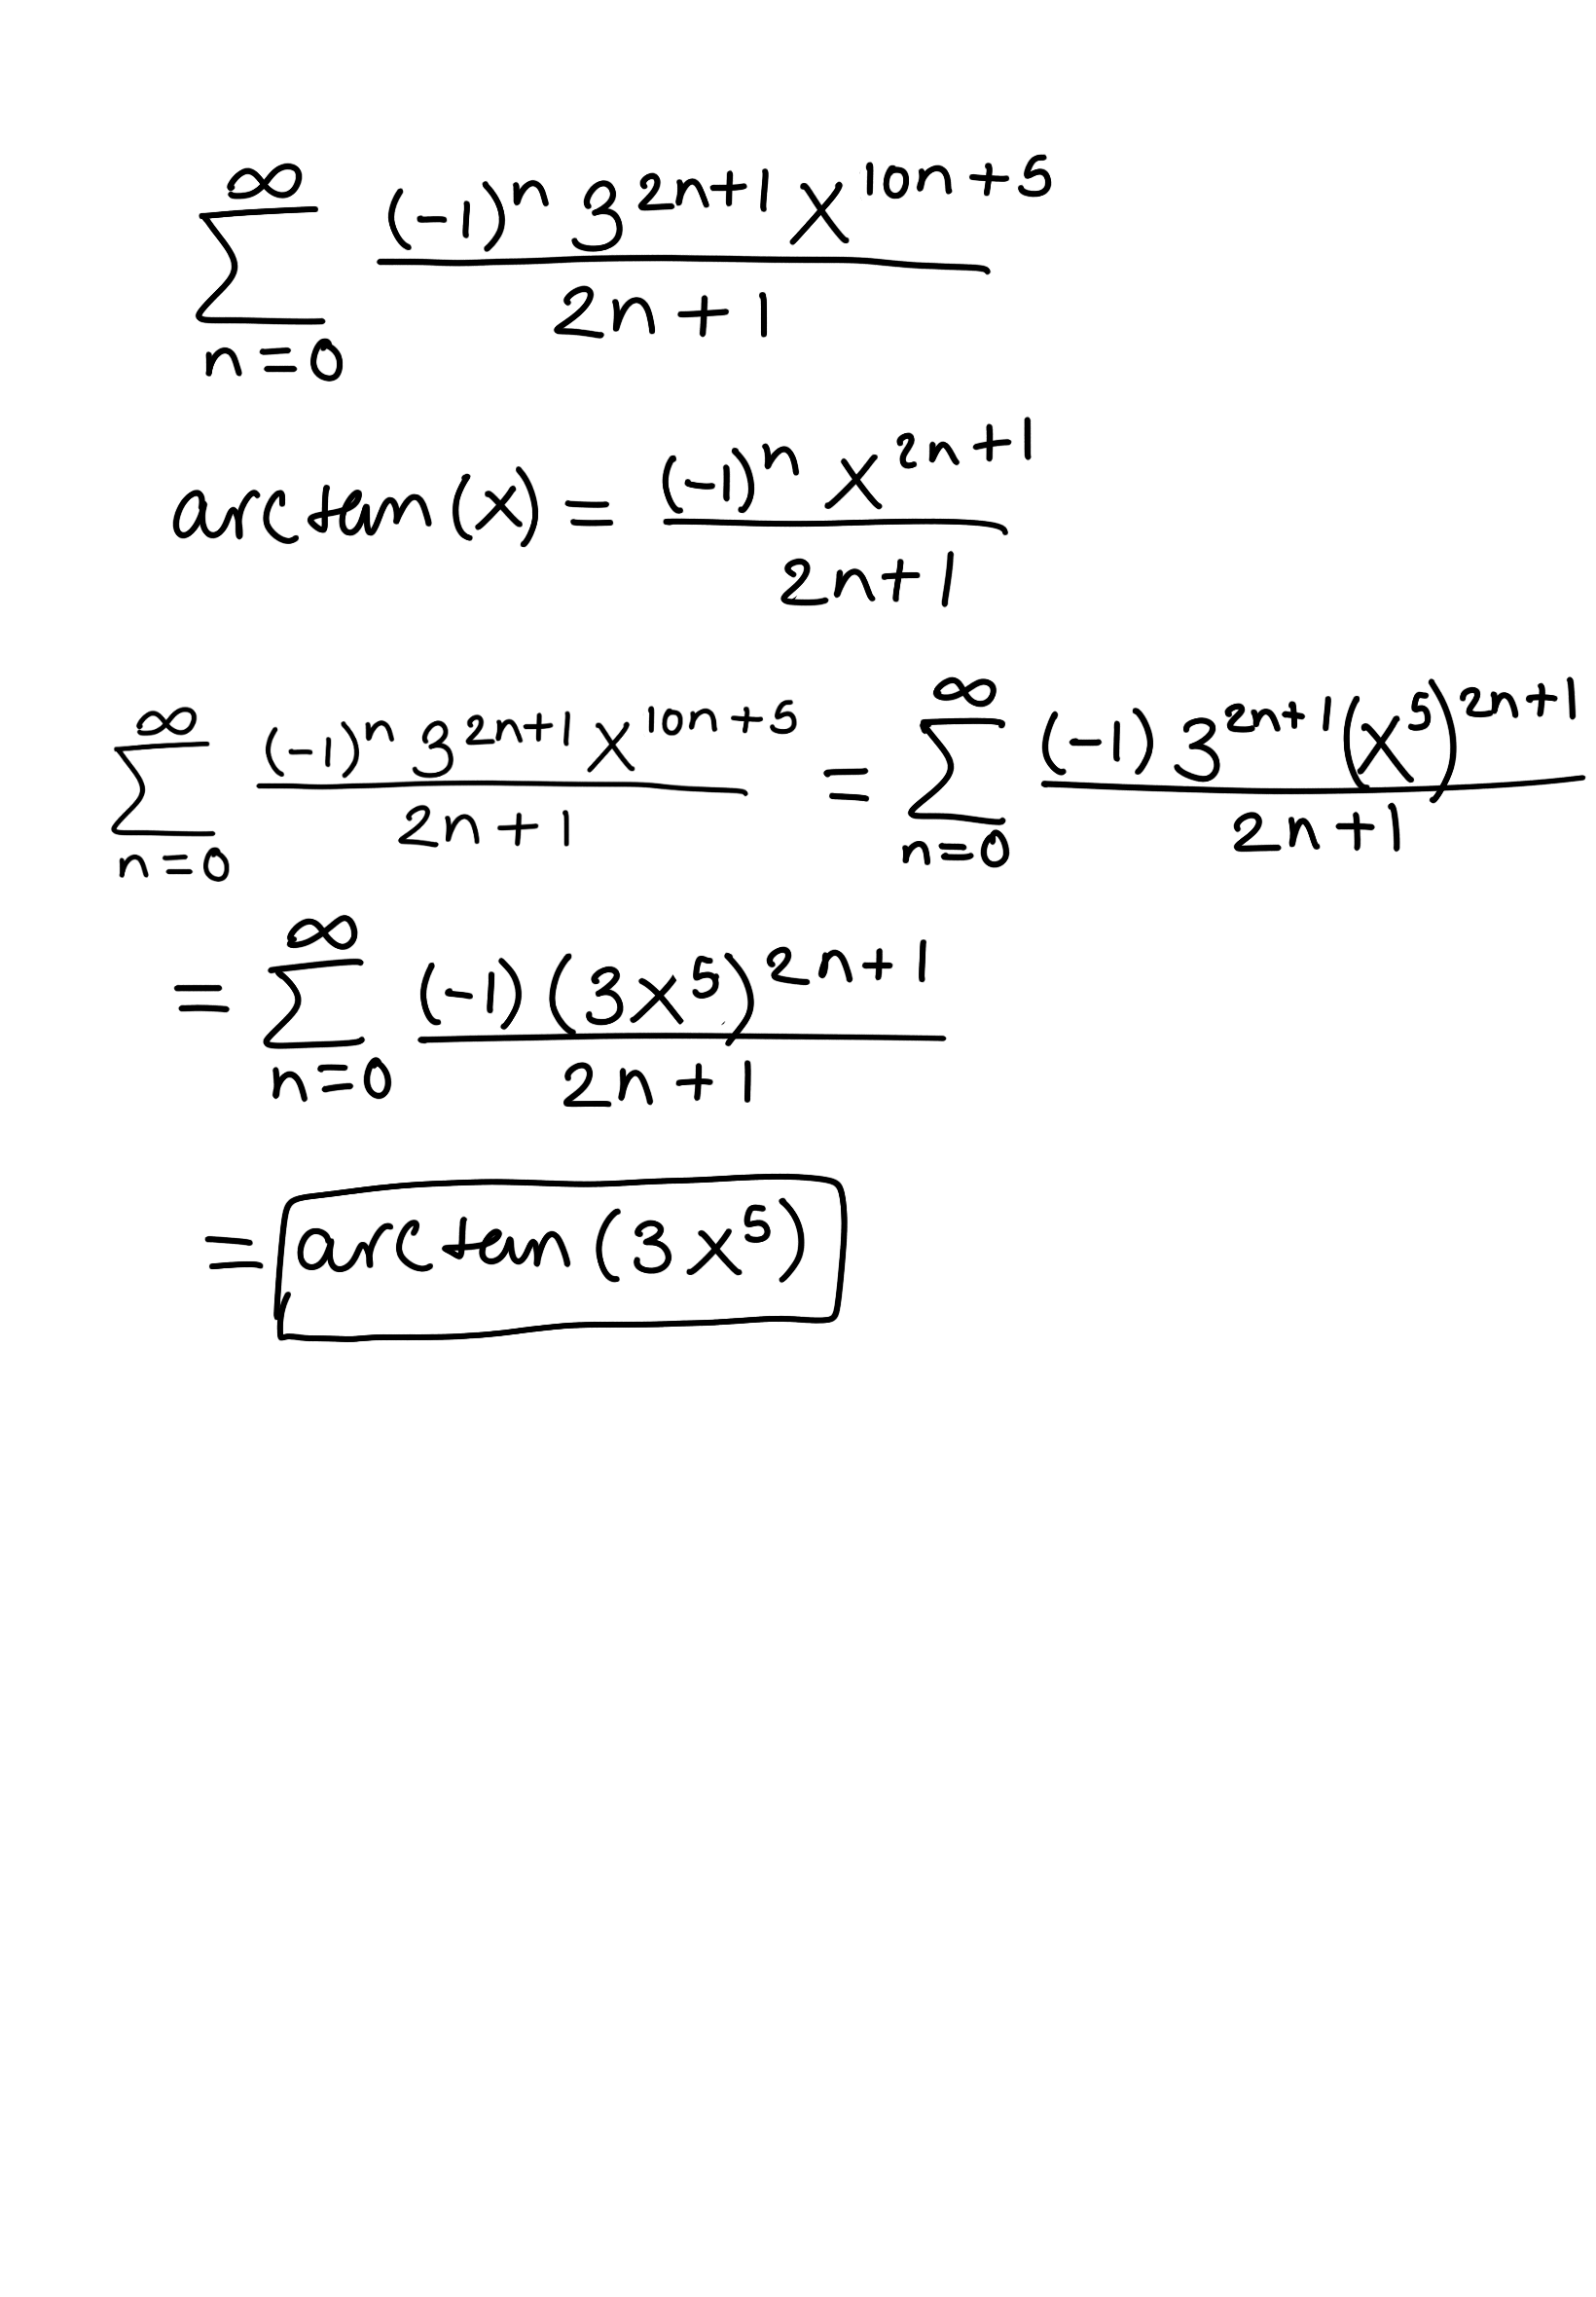 $\sum_{n=0}^{\infty} \frac{(-1)^n 3^{2n+1} x^{10n+5}}{2n+1}$
$\arctan(x) = \frac{(-1)^n x^{2n+1}}{2n+1}$
$\sum_{n=0}^{\infty} \frac{(-1)^n 3^{2n+1} x^{10n+5}}{2n+1} = \sum_{n=0}^{\infty} \frac{(-1) 3^{2n+1} (x^5)^{2n+1}}{2n+1}$
$= \sum_{n=0}^{\infty} \frac{(-1) (3x^5)^{2n+1}}{2n+1}$
$= \boxed{\arctan(3x^5)}$